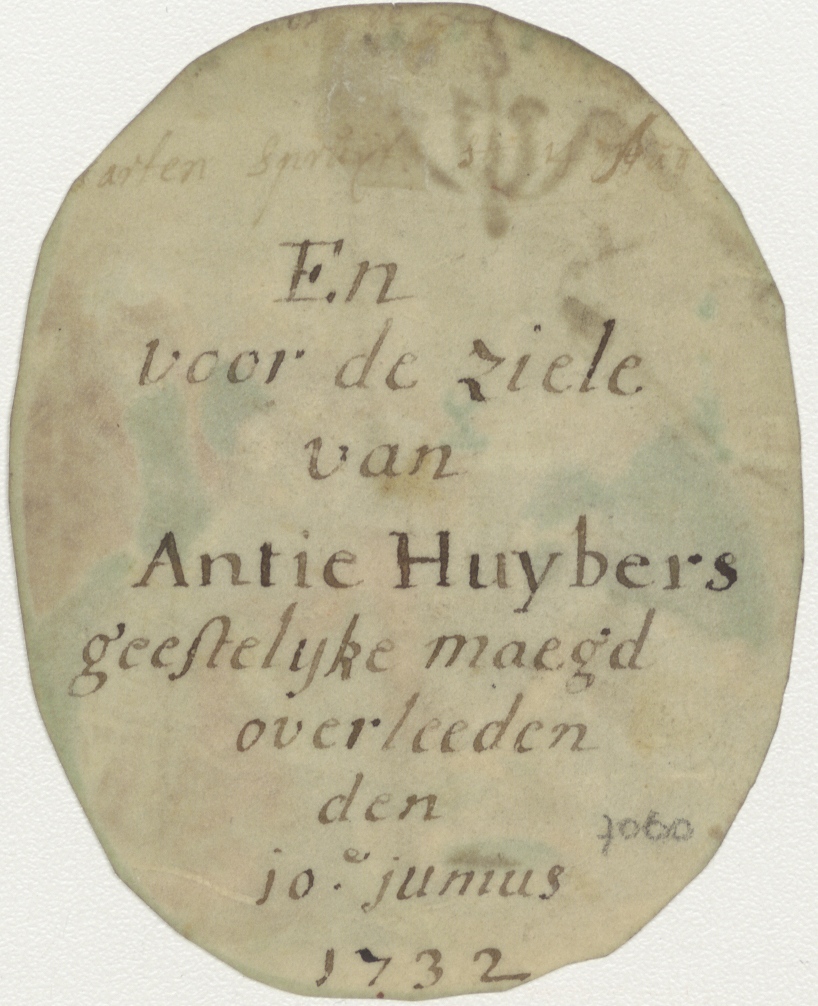 arten Spruyt
En
voor de ziele
van
Antie Huybers
geestelyke maegd
overleeden
den
10.e junius
1732
7060